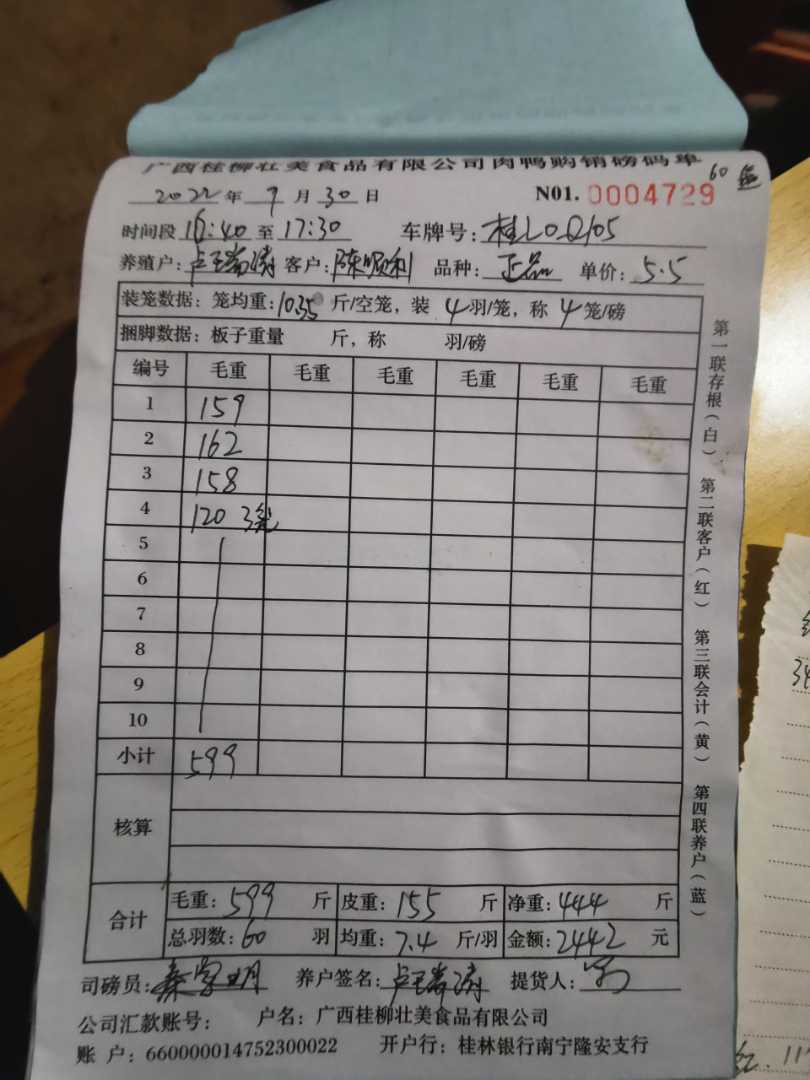 广西桂柳壮美食品有限公司肉鸭购销磅码单
60
2022年9月30日 N01.0004729
时间段16:40至17:30 车牌号:桂L0Q105
养殖户: 客户:陈顺利 品种:正品 单价:5.5
装笼数据:笼均重:10.35斤/空笼,装4羽/笼,称4笼/磅
捆脚数据:板子重量 斤,称 羽/磅
编号 毛重 毛重 毛重 毛重 毛重 毛重
1 159
2 162
3 158
4 120 3笼
5
6
7
8
9
10
小计 599
核算
合计 毛重:599斤 皮重:155斤 净重:444斤
总羽数:60羽 均重:7.4斤/羽 金额:2442元
司磅员: 养户签名: 提货人:
公司汇款账号: 户名:广西桂柳壮美食品有限公司
账 户:660000014752300022 开户行:桂林银行南宁隆安支行
第一联存根(白) 第二联客户(红) 第三联会计(黄) 第四联养户(蓝)